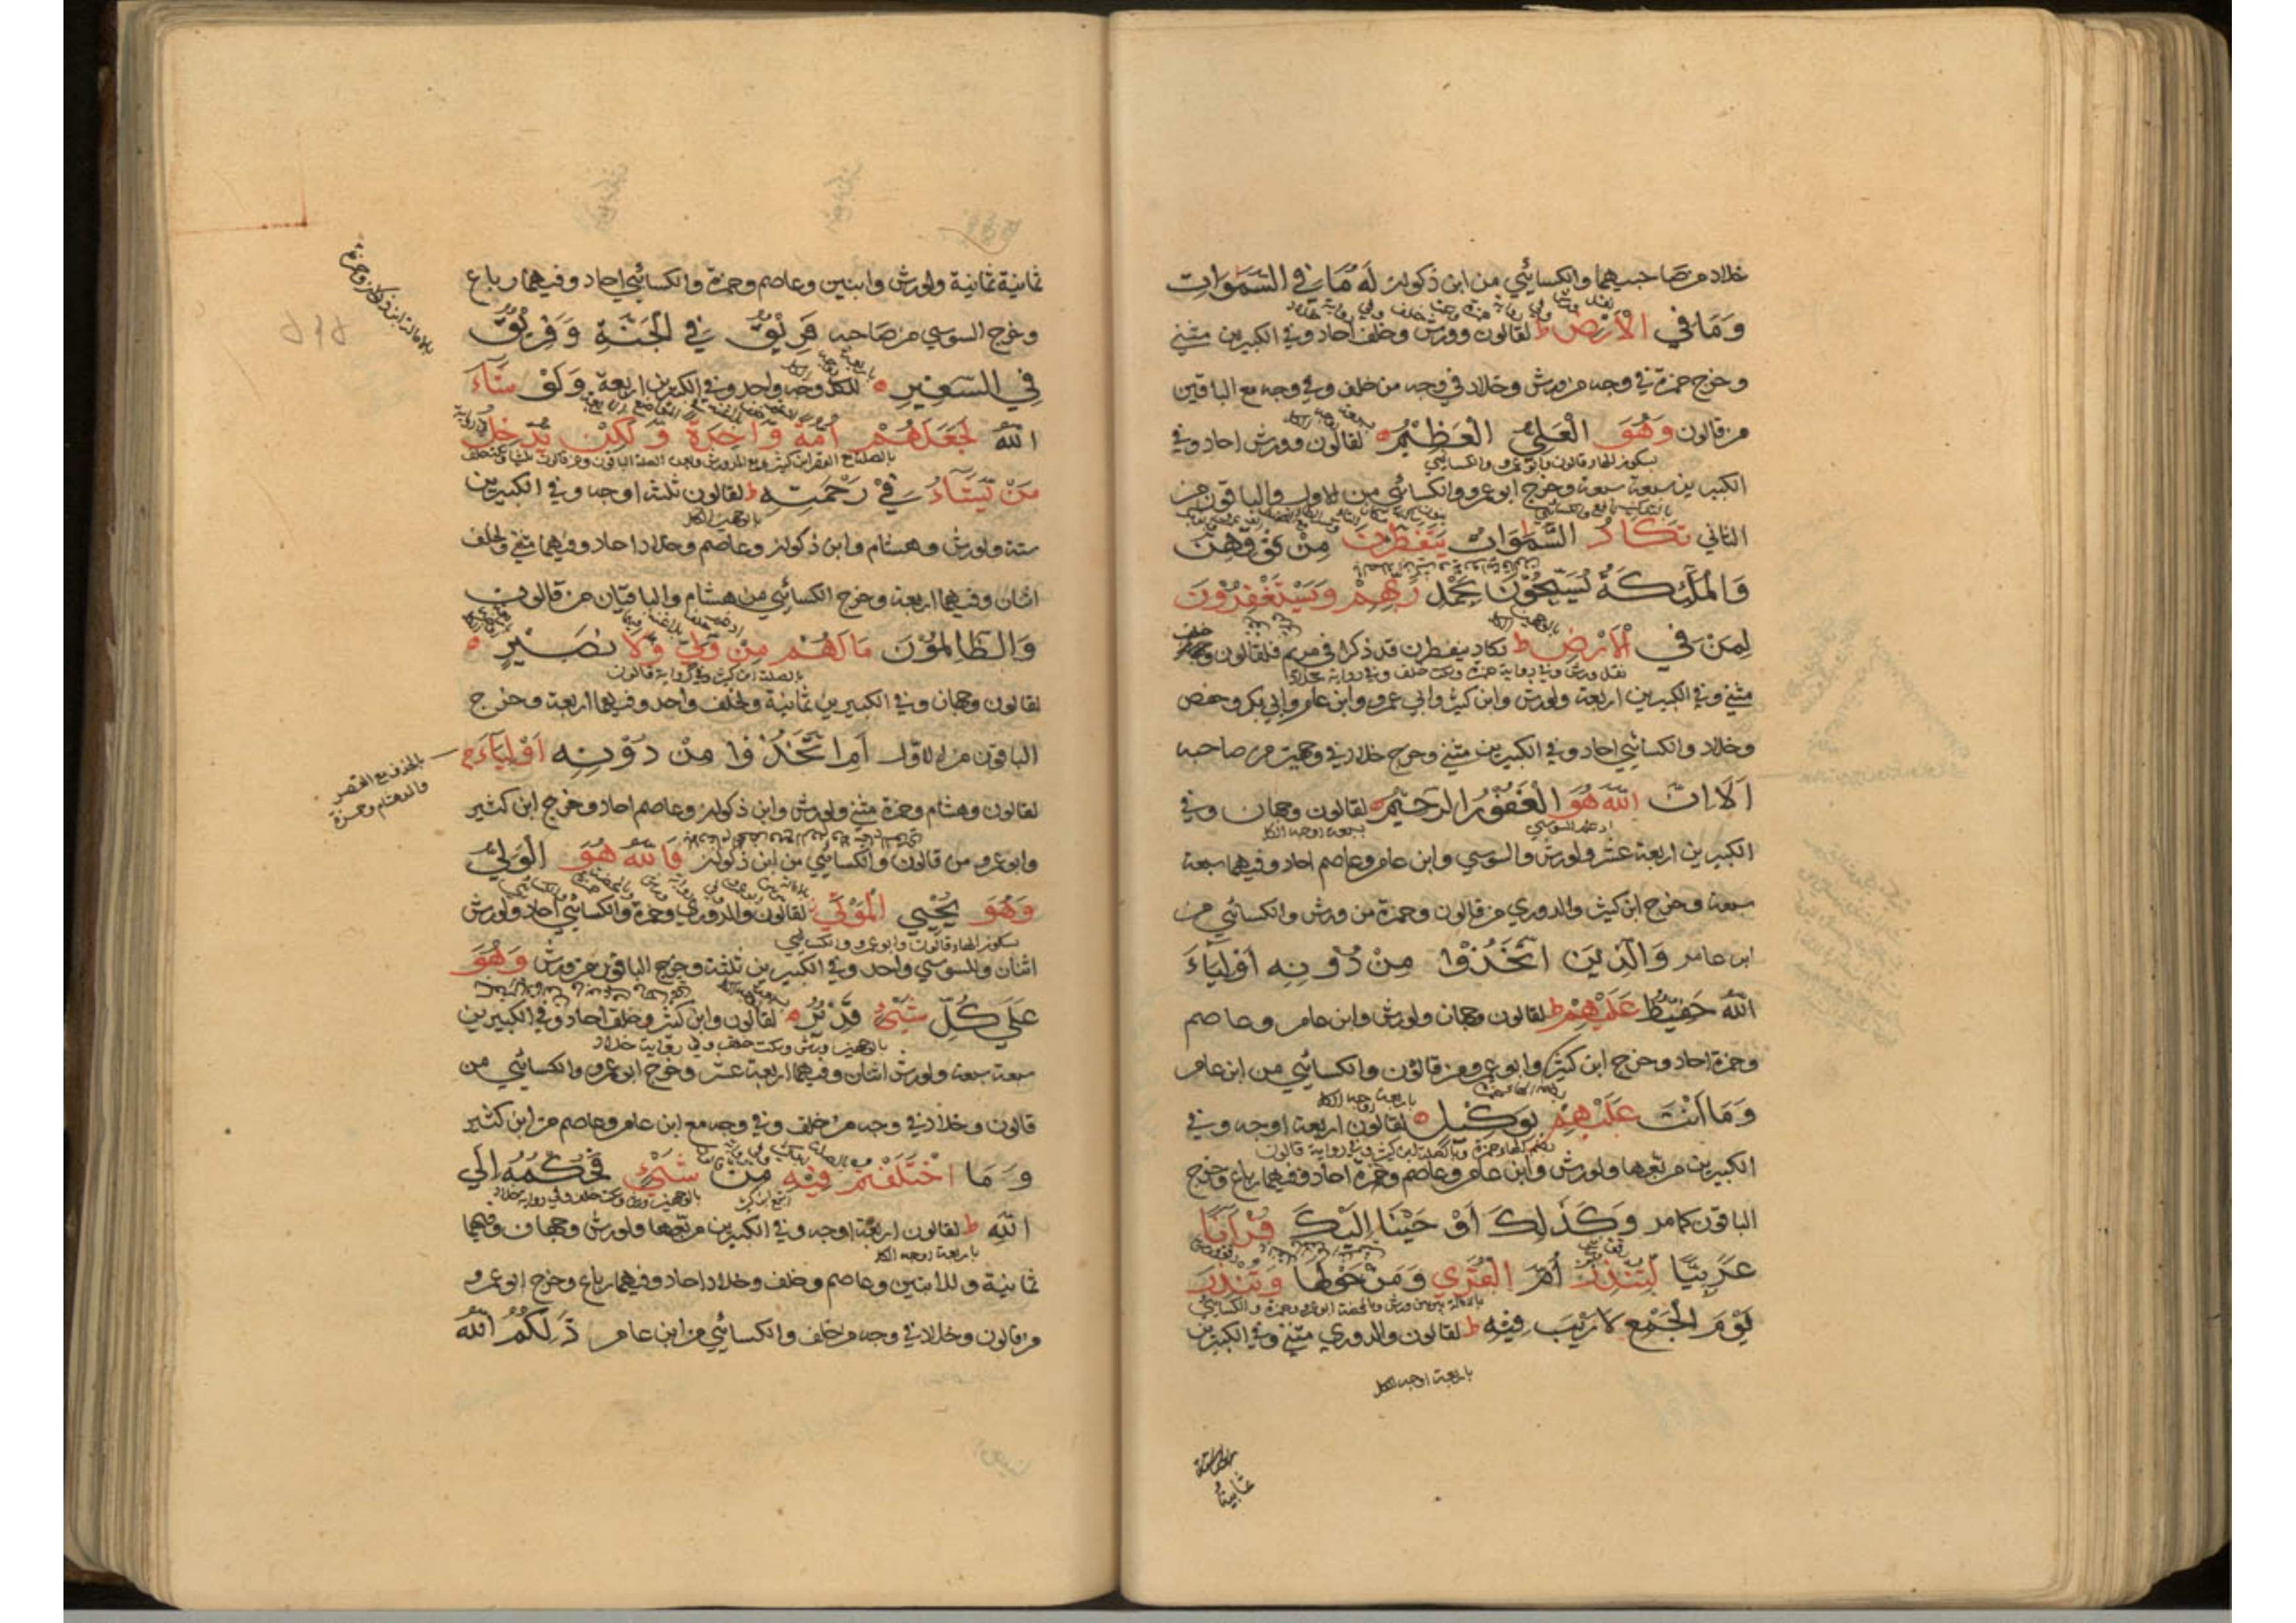 خلاد من صاحبيهما والكسائي من ابن ذكوان لَهُ مَا فِي السَّمَوَاتِ
وَمَا فِي الْأَرْضِ ط لقالون وورش وخلف احاد وفي الكبيرين مثني
وخرج حمزة في وجه من ورش وخلاد في وجه من خلف وفي وجه مع الباقين
من قالون وَهُوَ الْعَلِيُّ الْعَظِيْمُ لقالون وورش احاد وفي
بسكون الهاء قالون وابو عمرو والكسائي
الكبيرين سبعة سبعة وخرج ابو عمرو والكسائي من الاول والباقون من
الثاني تَكَادُ السَّمَوَاتُ يَتَفَطَّرْنَ مِنْ فَوْقِهِنَّ
وَالْمَلَئِكَةُ يُسَبِّحُوْنَ بِحَمْدِ رَبِّهِمْ وَيَسْتَغْفِرُوْنَ
لِمَنْ فِي الْأَرْضِ ط تكاد ينفطرن قد ذكرا في مريم فلقالون
نقل ورش وفي رواية حمزة وسكت خلف وفي رواية خلاد
مثني وفي الكبيرين اربعة ولورش وابن كثير وابي عمرو وابن عامر وابي بكر وحفص
وخلاد والكسائي احاد وفي الكبيرين مثني وخرج خلاد في وجهين من صاحبه
اَلَا اِنَّ اللّٰهَ هُوَ الْغَفُوْرُ الرَّحِيْمُ لقالون وجهان وفي
ادغم السوسي بسبعة اوجه الكل
الكبيرين اربعة عشر ولورش والسوسي وابن عامر وعاصم احاد وفيهما سبعة
سبعة وخرج ابن كثير والدوري من قالون وحمزة من ورش والكسائي من
ابن عامر وَالَّذِيْنَ اتَّخَذُوْا مِنْ دُوْنِهِ اَوْلِيَاءَ
اللّٰهُ حَفِيْظٌ عَلَيْهِمْ ط لقالون وجهان ولورش وابن عامر وعاصم
وحمزة احاد وخرج ابن كثير وابو عمرو من قالون والكسائي من ابن عامر
وَمَا اَنْتَ عَلَيْهِمْ بِوَكِيْلٍ لقالون اربعة اوجه وفي
بضم الهاء حمزة وبالصلة ابن كثير وفي رواية قالون
الكبيرين مربعها ولورش وابن عامر وعاصم وحمزة احاد وفيهما رباع وخرج
الباقون كما مر وَكَذَلِكَ اَوْحَيْنَا اِلَيْكَ قُرْآنًا
عَرَبِيًّا لِتُنْذِرَ اُمَّ الْقُرَى وَمَنْ حَوْلَهَا وَتُنْذِرَ
بالامالة بين بين ورش وبالمحضة ابو عمرو وحمزة والكسائي
يَوْمَ الْجَمْعِ لَا رَيْبَ فِيْهِ ط لقالون والدوري مثني وفي الكبيرين
باربعة اوجه الكل
ثمانية
ثمانية ثمانية ولورش وابنين وعاصم وحمزة والكسائي احاد وفيهما رباع
وخرج السوسي من صاحبه فَرِيْقٌ فِي الْجَنَّةِ وَفَرِيْقٌ
فِي السَّعِيْرِ للكل وجه واحد وفي الكبيرين اربعة وَلَوْ شَاءَ
اللّٰهُ لَجَعَلَهُمْ اُمَّةً وَاحِدَةً وَلَكِنْ يُدْخِلُ
مَنْ يَشَاءُ فِيْ رَحْمَتِهِ ط لقالون ثلثة اوجه وفي الكبيرين
بالوجهين الكل
ستة ولورش وهشام وابن ذكوان وعاصم وخلاد احاد وفيهما مثني ولخلف
اثنان وفيهما اربعة وخرج الكسائي من هشام والباقيان من قالون
وَالظَّالِمُوْنَ مَا لَهُمْ مِنْ وَلِيٍّ وَلَا نَصِيْرٍ
بالصلة ابن كثير وفي رواية قالون
لقالون وجهان وفي الكبيرين ثمانية ولخلف واحد وفيهما اربعة وخرج
الباقون من الاول اَمِ اتَّخَذُوْا مِنْ دُوْنِهِ اَوْلِيَاءَ ج
بالحذف مع القصر
والمد هشام وحمزة
لقالون وهشام وحمزة مثني ولورش وابن ذكوان وعاصم احاد وخرج ابن كثير
وابو عمرو من قالون والكسائي من ابن ذكوان فَاللّٰهُ هُوَ الْوَلِيُّ
وَهُوَ يُحْيِي الْمَوْتَى لقالون والدوري وحمزة والكسائي احاد ولورش
بسكون الهاء قالون وابو عمرو والكسائي
اثنان وللسوسي واحد وفي الكبيرين ثلثة وخرج الباقون من ورش وَهُوَ
عَلَى كُلِّ شَيْءٍ قَدِيْرٌ لقالون وابن كثير وخلف احاد وفي الكبيرين
بالوجهين ورش وسكت خلف وفي رواية خلاد
سبعة سبعة ولورش اثنان وفيهما اربعة عشر وخرج ابو عمرو والكسائي من
قالون وخلاد في وجه من خلف وفي وجه مع ابن عامر وعاصم من ابن كثير
وَمَا اخْتَلَفْتُمْ فِيْهِ مِنْ شَيْءٍ فَحُكْمُهُ اِلَى
اللّٰهِ ط لقالون اربعة اوجه وفي الكبيرين مربعها ولورش وجهان وفيهما
باربعة اوجه الكل
ثمانية وللابنين وعاصم وخلف وخلاد احاد وفيهما رباع وخرج ابو عمرو
من قالون وخلاد في وجه من خلف والكسائي من ابن عامر ذَلِكُمُ اللّٰهُ